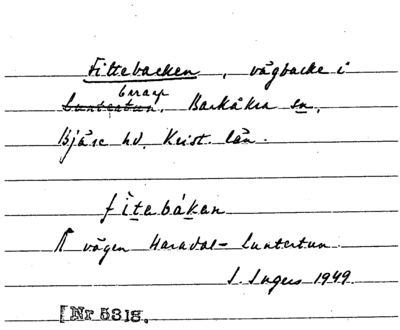 Fittebacken, vägbacke i
Luntertun, Barkåkra sn,
Bjäre hd. Krist. län.
fìtebákan
På vägen Haradal - Luntertun
I. Ingers 1949
[Nr 5318.